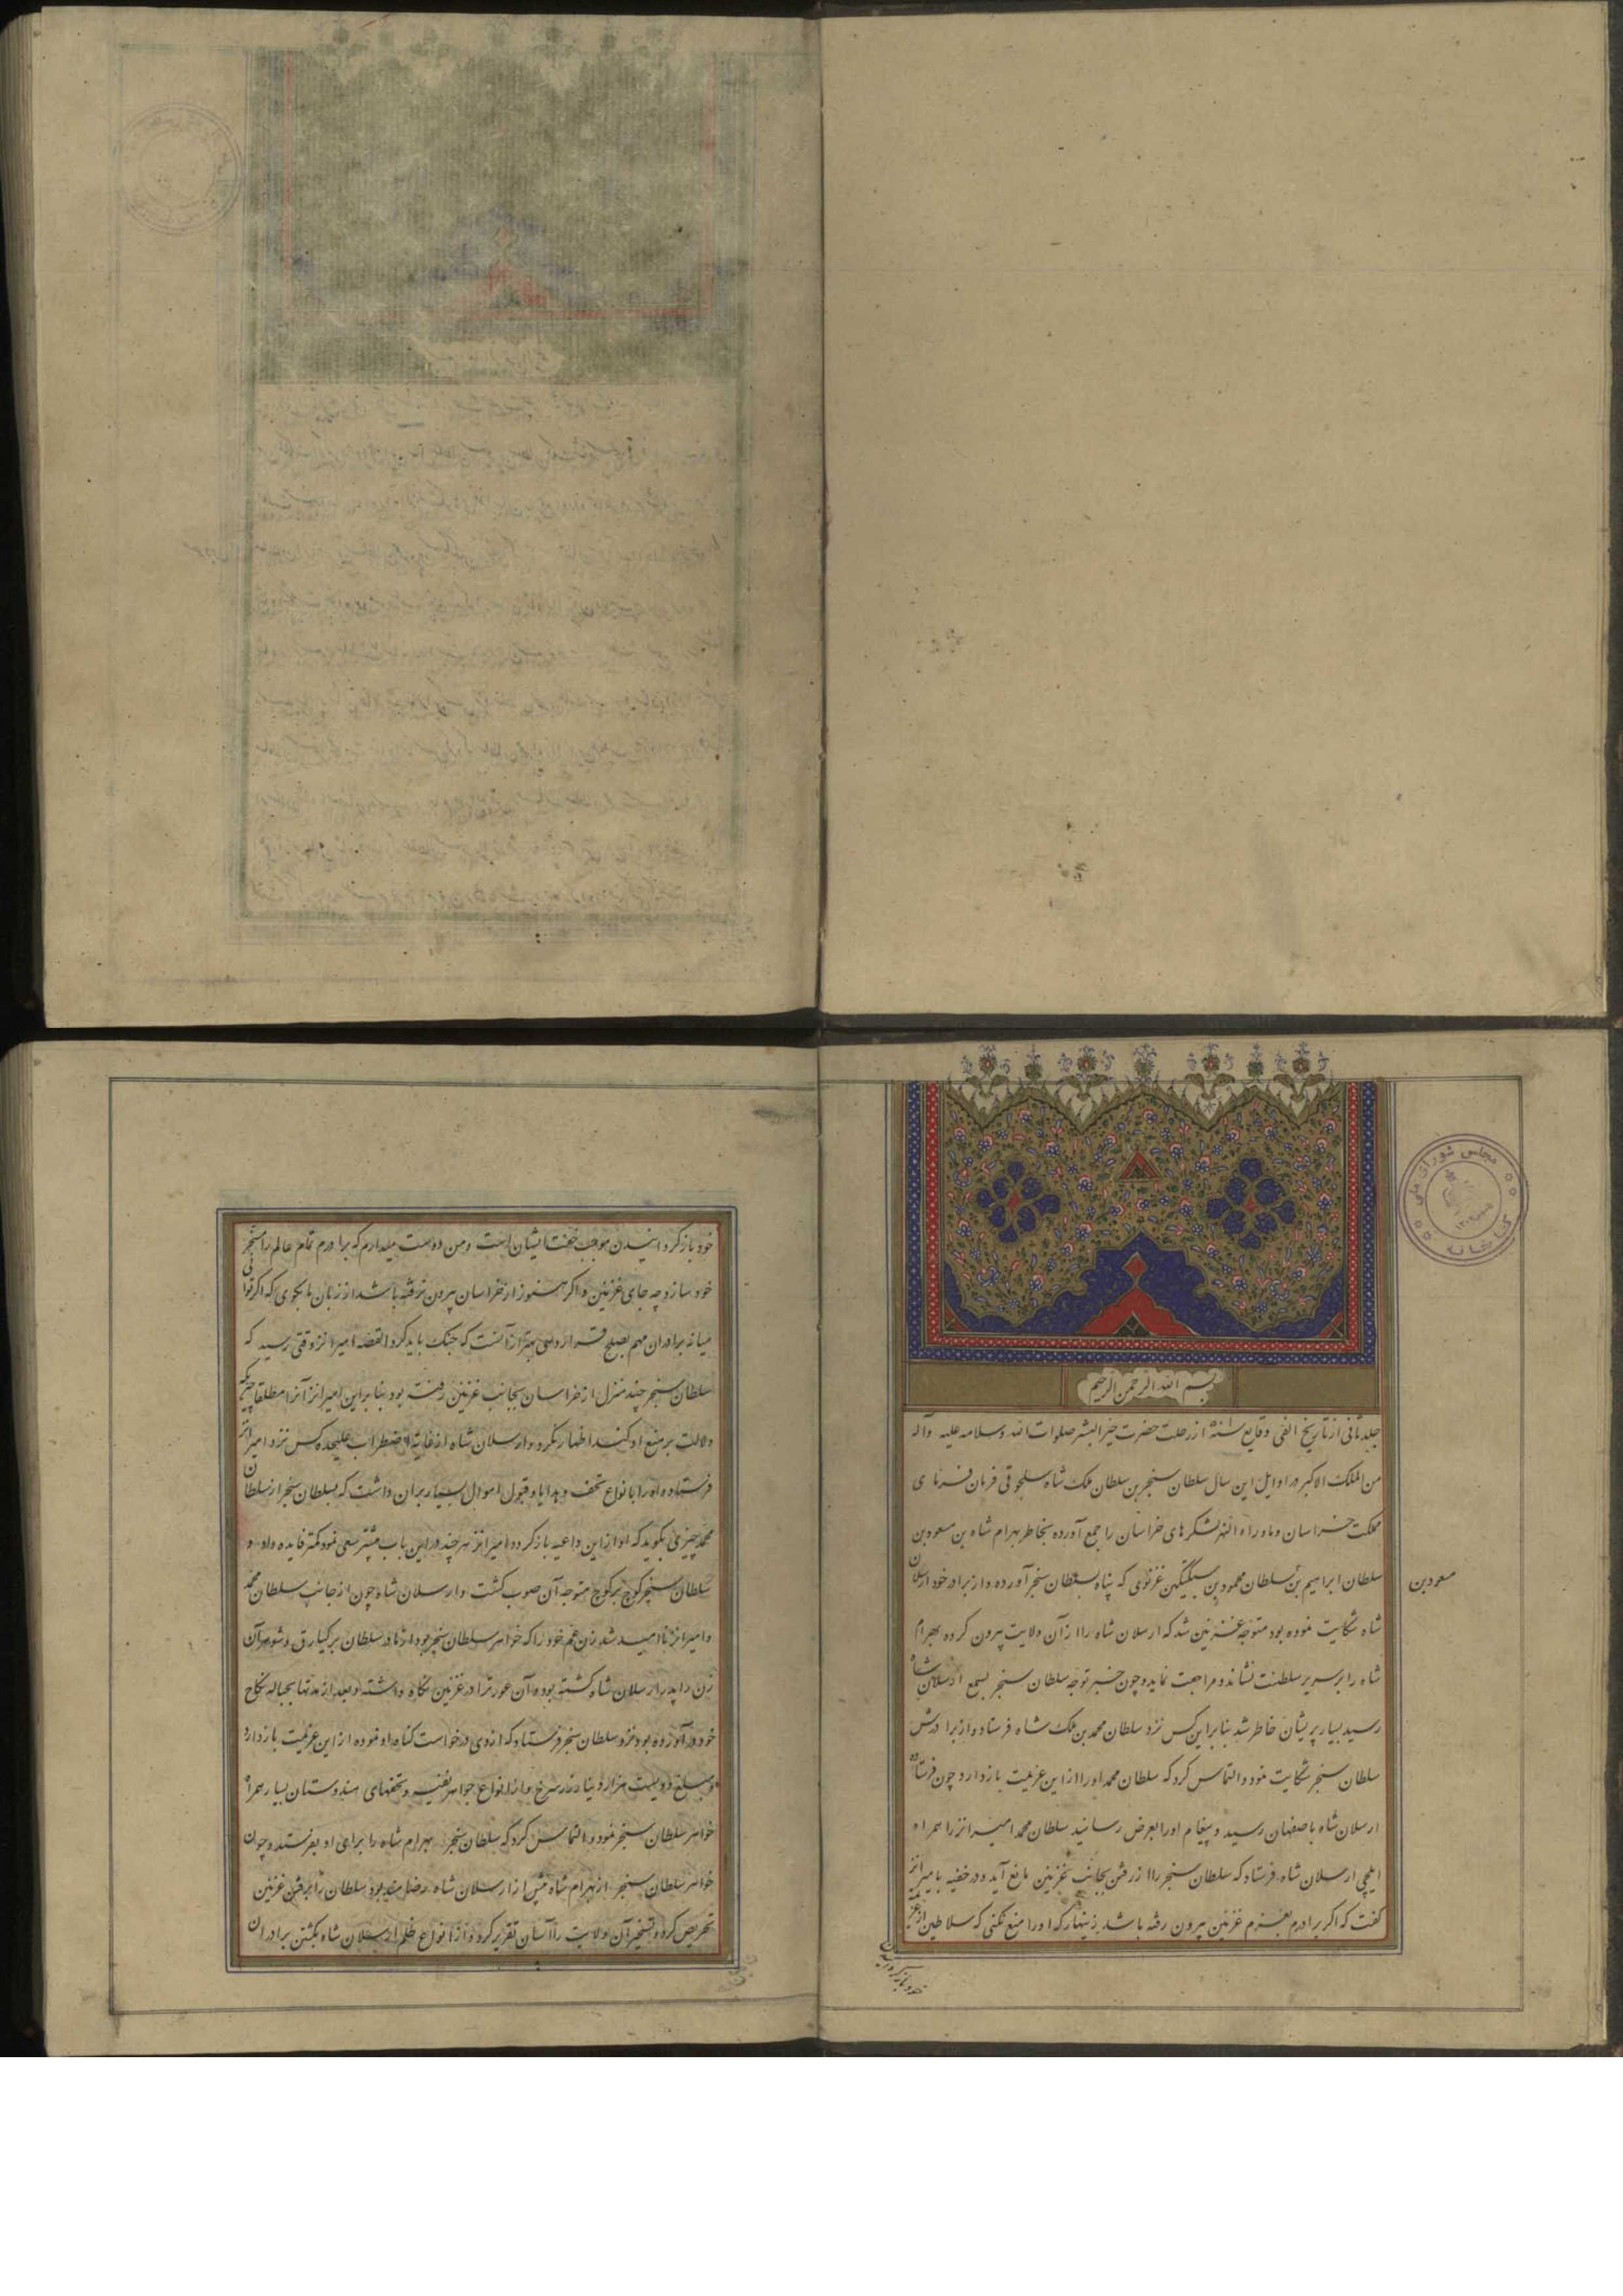 بسم الله الرحمن الرحیم
جلد ثانی از تاریخ الفی وقایع سنه از رحلت حضرت خیر البشر صلوات الله وسلامه علیه وآله
من الملک الاکبر در اوایل این سال سلطان سنجر بن سلطان ملک شاه سلجوقی فرمان فرمای
مملکت خراسان وماوراء النهر لشکرهای خراسان را جمع آورده بخاطر بهرام شاه بن مسعود بن
سلطان ابراهیم بن سلطان محمود بن سبکتکین غزنوی که پناه بسلطان سنجر آورده واز برادر خود ارسلان
مسعود بن
شاه شکایت نموده بود متوجه غزنین شد که ارسلان شاه را از آن ولایت بیرون کرده بهرام
شاه را بر سریر سلطنت نشانده مراجعت نماید وچون خبر توجه سلطان سنجر بسمع ارسلان شاه
رسید بسیار پریشان خاطر شد بنابراین کس نزد سلطان محمد بن ملک شاه فرستاد واز برادرش
سلطان سنجر شکایت نمود والتماس کرد که سلطان محمد او را از این عزیمت بازدارد چون فرستاده
ارسلان شاه باصفهان رسید وپیغام او را بعرض رسانید سلطان محمد امیر انز را همراه
ایلچی ارسلان شاه فرستاد که سلطان سنجر را از رفتن بجانب غزنین مانع آید ودر خفیه بامیر انز
کفت که اکر برادرم بعزم غزنین بیرون رفته باشد زینهار که او را منع نکنی که سلاطین از
خود باز کردانیدن
خود باز کردانیدن موجب خفت ایشان است ومن دوست میدارم که برادرم تمام عالم را مسخر
خود سازد چه جای غزنین واکر هنوز از خراسان بیرون نرفته باشد از زبان ما بکوی که اکر توانی
میانه برادران مهم بصلح قرار دهی بهتر از آنست که جنک باید کرد القصه امیر انز وقتی رسید که
سلطان سنجر چند منزل از خراسان بجانب غزنین رفته بود بنابراین امیر انز آنرا مطلقا چیزیکه
دلالت بر منع او کند اظهار نکرد وارسلان شاه از غایة اضطراب علیحده کس نزد امیر انز
فرستاده او را بانواع تحف وهدایا وقبول اموال بسیار بران داشت که بسلطان سنجر از سلطان
محمد چیزی بکوید که او از این داعیه باز کردد امیر انز هرچند در این باب بیشتر سعی نمود کمتر فایده داد و
سلطان سنجر کوچ بر کوچ متوجه آن صوب کشت وارسلان شاه چون از جانب سلطان محمد
وامیر انز ناامید شد زن عم خود را که خواهر سلطان سنجر بود از مادر سلطان برکیارق وشوهر آن
زن را پدر ارسلان شاه کشته بوده آن عورت را در غزنین نکاه داشته وبعد از مدتها بحباله نکاح
خود در آورده بود نزد سلطان سنجر فرستاد که از وی درخواست کناه او نموده از این عزیمت بازدارد
ومبلغ دویست هزار دینار زر سرخ واز انواع جواهر نفیسه وتحفهای هندوستان بسیار همراه
خواهر سلطان سنجر نمود والتماس کرد که سلطان سنجر بهرام شاه را برای او بفرستد وچون
خواهر سلطان سنجر از بهرام شاه بیش از ارسلان شاه رضامند بود سلطان را برفتن غزنین
تحریص کرد وتسخیر آن ولایت را آسان تقریر کرد واز انواع ظلم ارسلان شاه بکشتن برادران
مجلس شورای ملی
کتابخانه